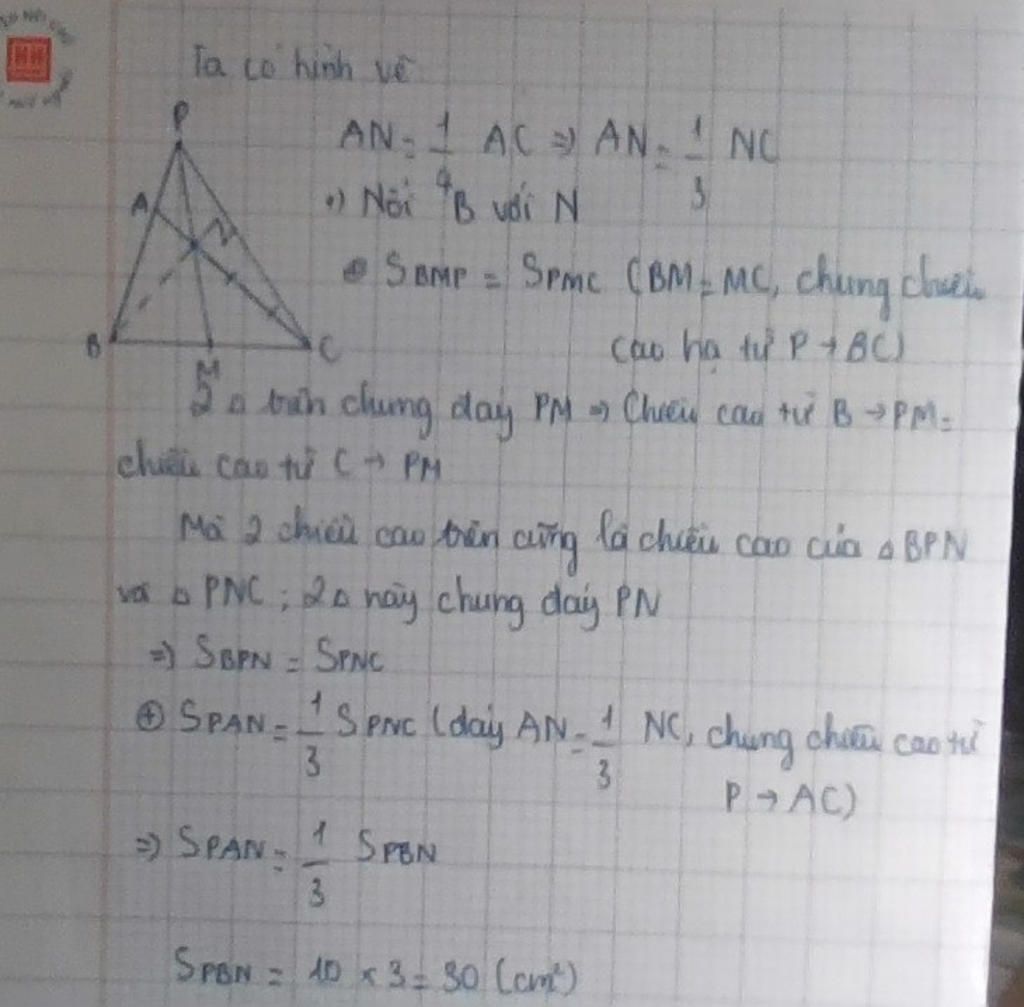 Ta có hình vẽ
P
AN = 1/4 AC => AN = 1/3 NC
A
N
•) Nối B với N
⊕ SBMP = SPMC (BM = MC, chung chiều
cao hạ từ P → BC)
B
M
C
2 △ trên chung đáy PM => Chiều cao từ B → PM =
chiều cao từ C → PM
Mà 2 chiều cao trên cũng là chiều cao của △ BPN
và △ PNC ; 2△ này chung đáy PN
=> SBPN = SPNC
⊕ SPAN = 1/3 SPNC (đáy AN = 1/3 NC, chung chiều cao từ
P → AC)
=> SPAN = 1/3 SPBN
SPBN = 10 × 3 = 30 (cm²)